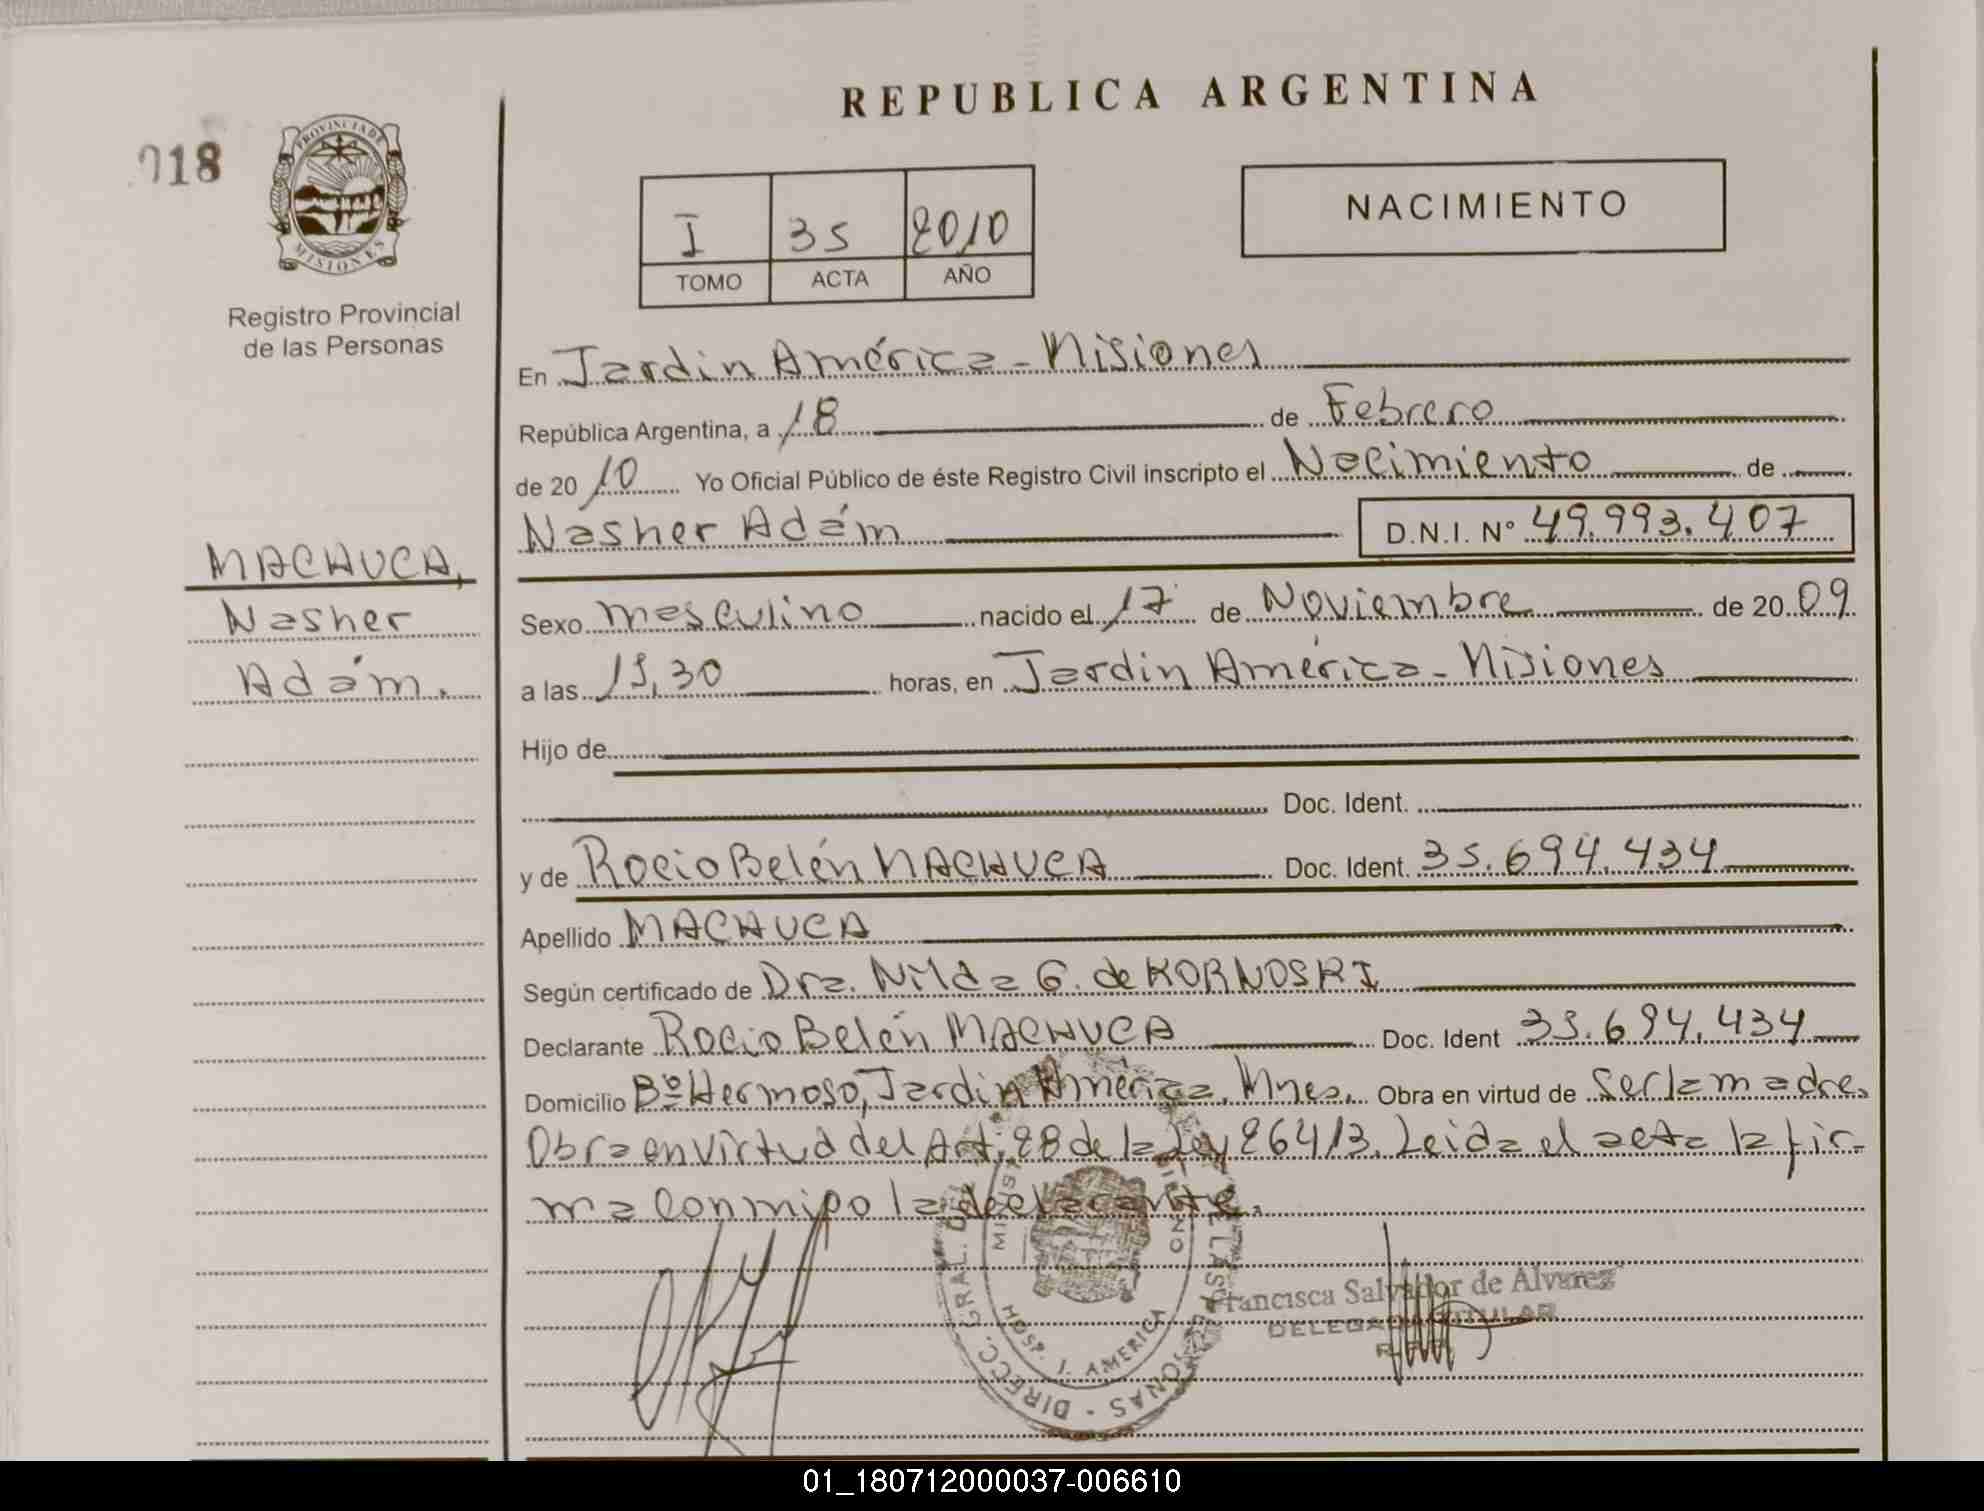 REPUBLICA ARGENTINA
018
PROVINCIA DE
MISIONES
Registro Provincial
de las Personas
I 35 2010
TOMO ACTA AÑO
NACIMIENTO
En Jardin América - Misiones
República Argentina, a 18 de Febrero
de 20 10 Yo Oficial Público de éste Registro Civil inscripto el Nacimiento de
Nasher Adám D.N.I. Nº 49.993.407
MACHUCA,
Nasher
Adám.
Sexo masculino nacido el 17 de Noviembre de 20 09
a las 15,30 horas, en Jardin América - Misiones
Hijo de
Doc. Ident.
y de Rocio Belén MACHUCA Doc. Ident. 35.694.434
Apellido MACHUCA
Según certificado de Dra. Nilda G. de KORNOSKI
Declarante Rocio Belén MACHUCA Doc. Ident 35.694.434
Domicilio Bº Hermoso, Jardin América, Mnes. Obra en virtud de ser la madre.
Obra en virtud del Art. 28 de la Ley 26413. Leida el acta la fir-
ma conmigo la declarante.
DIRECC. GRAL. DE LAS PERSONAS
HOSP. J. AMERICA
Francisca Salvador de Alvarez
DELEGADA TITULAR
R.P.P.
01_180712000037-006610